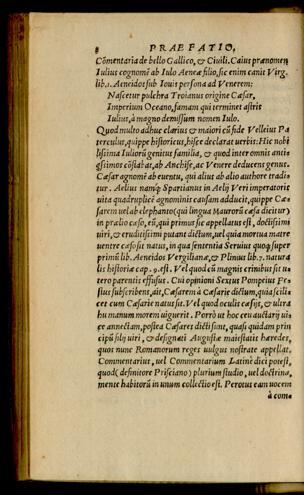 8 PRAEFATIO,
Cōmentaria de bello Gallico, & Ciuili. Caius prænomen,
Iulius cognomē ab Iulo Aeneæ filio, sic enim canit Virg.
lib. 1. Aeneidos sub Iouis persona ad Venerem:
Nascetur pulchra Troianus origine Cæsar,
Imperium Oceano, famam qui terminet astris
Iulius, à magno demissum nomen Iulo.
Quod multo adhuc clarius & maiori cū fide Velleius Pa
terculus, quippe historicus, hisce declarat uerbis: Hic nobi
lissima Iuliorū genitus familia, & quod inter omnis anti-
quissimos cōstabat, ab Anchise, ac Venere deducens genus.
Cæsar agnomē ab euentu, qui alius ab alio authore tradi-
tur. Aelius namq; Spartianus in Aelij Veri imperatoris
uita quadruplicē agnominis causam adducit, quippe Cæ-
sarem uel ab elephanto (qui lingua Maurorū cæsa dicitur)
in prælio cæso, eū, qui primus sic appellatus est, doctissimi
uiri, & eruditissimi putant dictum, uel quia mortua matre
uentre cæso sit natus, in qua sententia Seruius quoq; super
primū lib. Aeneidos Vergilianæ, & Plinius lib. 7. natura
lis historiæ cap. 9. est. Vel quod cū magnis crinibus sit u-
tero parentis effusus. Cui opinioni Sextus Pompeius Fe-
stus subscribens, ait, Cæsarem à Cæsarie dictum, quia scili-
cet cum Cæsarie natus sit. Vel quod oculis cæsijs, & ultra
humanum morem uiguerit. Porrò ut hoc ceu auctarij ui-
ce annectam, postea Cæsares dicti sunt, quasi quidam prin
cipū filij uiri, & designati Augustæ maiestatis hæredes,
quos nunc Romanorum reges uulgus nostrate appellat.
Commentarius, uel Commentarium Latinè dici potest,
quod (definitore Prisciano) plurium studio, uel doctrina,
mente habitorū in unum collectio est. Perotus eam uocem
à com=